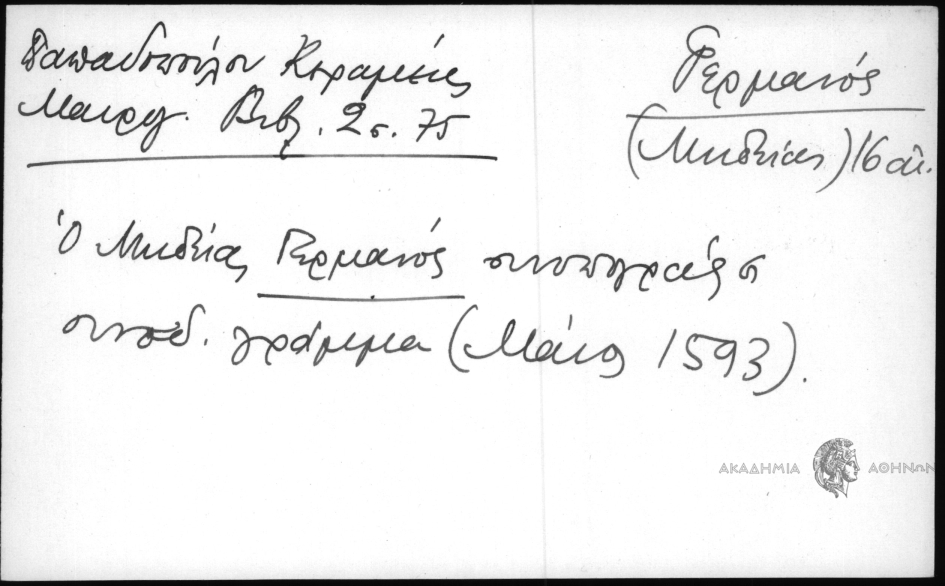 Παπαδοπούλου Κεραμεύς
Μαυρογ. Βιβ. 2 σ. 75
Γερμανός
(Μηδείας) 16 αἰ.
Ὁ Μηδείας Γερμανός συνυπογράφει
συνοδ. γράμμα (Μάιος 1593).
ΑΚΑΔΗΜΙΑ ΑΘΗΝΩΝ